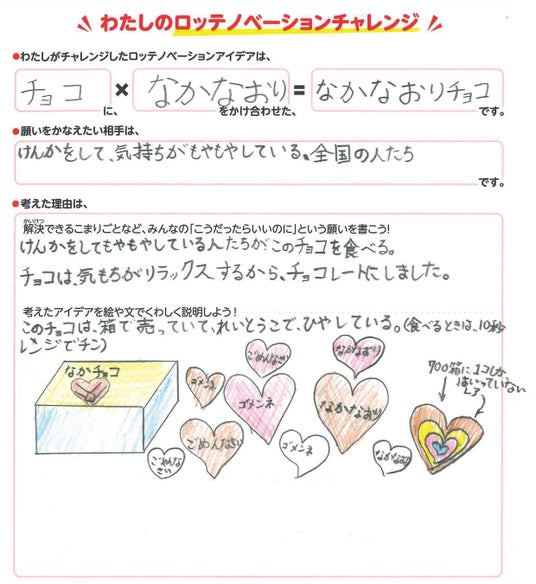 わたしのロッテノベーションチャレンジ
●わたしがチャレンジしたロッテノベーションアイデアは、
チョコ × なかなおり = なかなおりチョコ
に、 をかけ合わせた、 です。
●願いをかなえたい相手は、
けんかをして、気持ちがもやもやしている。全国の人たち
です。
●考えた理由は、
かいけつ
解決できるこまりごとなど、みんなの「こうだったらいいのに」という願いを書こう!
けんかをしてもやもやしている人たちがこのチョコを食べる。
チョコは、気もちがリラックスするから、チョコレートにしました。
考えたアイデアを絵や文でくわしく説明しよう!
このチョコは、箱で売っていて、れいとうこで、ひやしている。(食べるときは、10秒
レンジでチン)
なかチョコ
ゴメンネ
ごめんなさい
ゴメンネ
なかなおり
なかなおり
700箱に1コしか
はいっていない
レア
ごめんな
さい
ごめんなさい
ゴメンネ
なかなおり